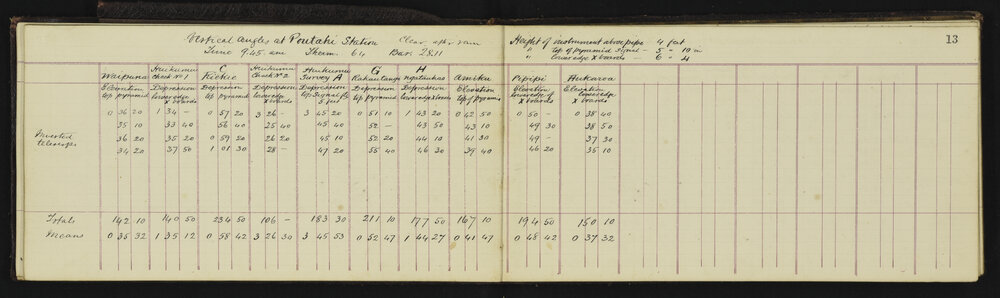 Vertical Angles at Poutahi Station Clear after rain
Time 9.45 am Therm. 64 Bar. 28.11
Height of instrument above pipe - 4 feet
" top of pyramid signal - 5 - 10 in
" lower edge X boards - 6 - 4
13
Waipuna Haukumu Check No 1 C Kiekie Haukumu Check No 2 Haukumu Survey A G H Pipipi Aukarea
Elevation top pyramid Depression lower edge X boards Depression top pyramid Depression X boards Depression top Signal 5 feet Depression top pyramid Depression Elevation top of pyramid Elevation lower edge of X boards Elevation lower edge X boards
0 36 20 1 34 - 0 57 20 3 26 - 3 45 20 0 51 10 1 43 20 0 42 50 0 50 - 0 38 40
35 10 33 40 56 40 25 40 45 40 52 - 43 50 43 10 49 30 38 50
Inverted telescope
36 20 35 20 0 59 20 26 20 45 10 52 20 44 10 41 30 49 - 37 30
34 20 37 50 1 01 30 28 - 47 20 55 40 46 30 39 40 46 20 35 10
Totals 142 10 140 50 234 50 106 - 183 30 211 10 177 50 167 10 194 50 150 10
Means 0 35 32 1 35 12 0 58 42 3 26 30 3 45 53 0 52 47 1 44 27 0 41 47 0 48 42 0 37 32